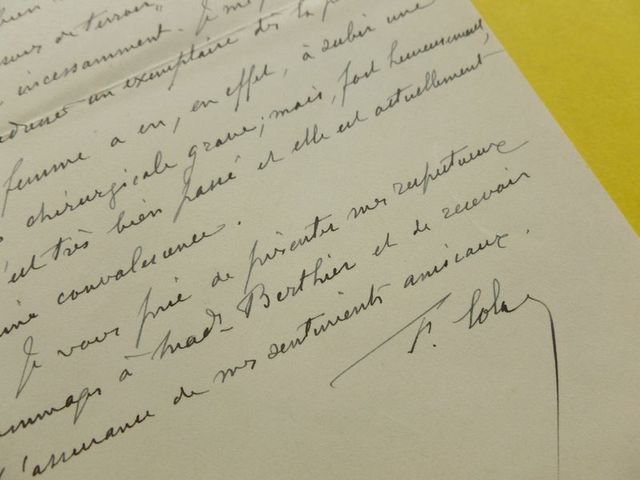 bien
de terroir"
incessamment. Je me
un exemplaire dès la
femme a eu, en effet, à subir une
chirurgicale grave; mais, fort heureusement,
est très bien passé et elle est actuellement
convalescence.
Je vous prie de présenter mes respectueux
ommages à Made Berthier et de recevoir
l'assurance de mes sentiments amicaux.